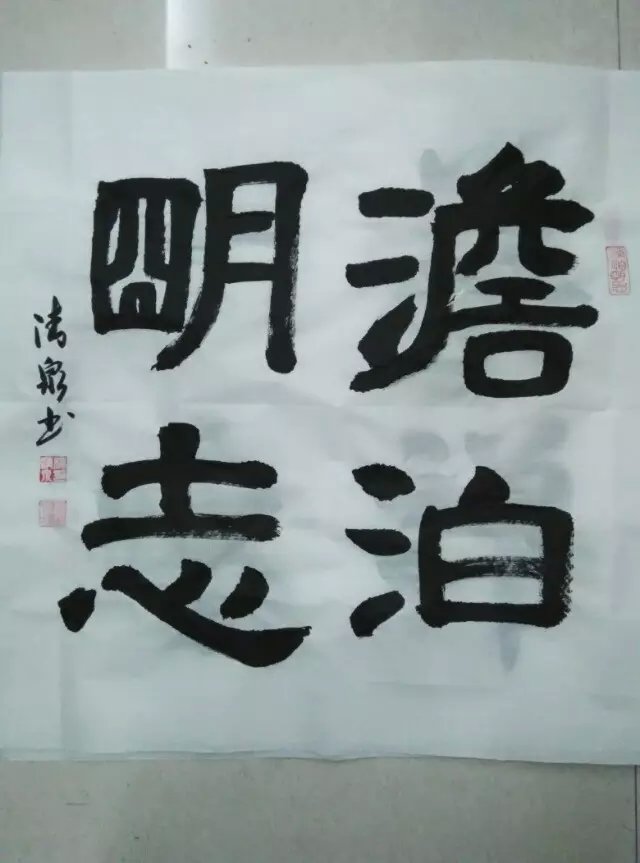 澹泊
明志
清泉书